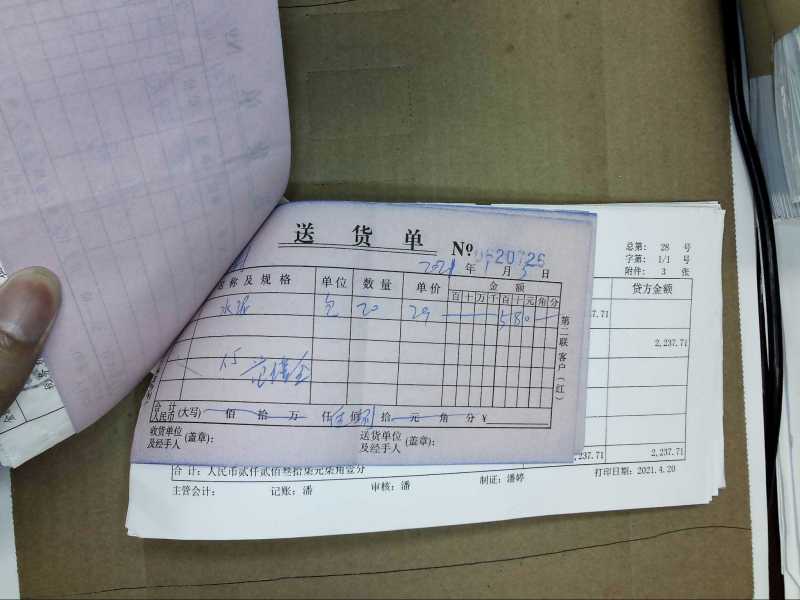 送 货 单
№ 0620726
2021 年 1 月 5 日
名 称 及 规 格 单 位 数 量 单 价 金 额
百 十 万 千 百 十 元 角 分
水泥 包 20 29 5 8 0
第二联 客户(红)
合 计 人民币 (大写) 佰 拾 万 仟 伍 佰 捌 拾 元 角 分 ¥
收货单位及经手人 (盖章): 送货单位及经手人 (盖章):
总第: 28 号
字第: 1/1 号
附件: 3 张
贷方金额
2,237.71
2,237.71
合 计: 人民币贰仟贰佰叁拾柒元柒角壹分 打印日期: 2021.4.20
主管会计: 记账: 潘 审核: 潘 制证: 潘婷